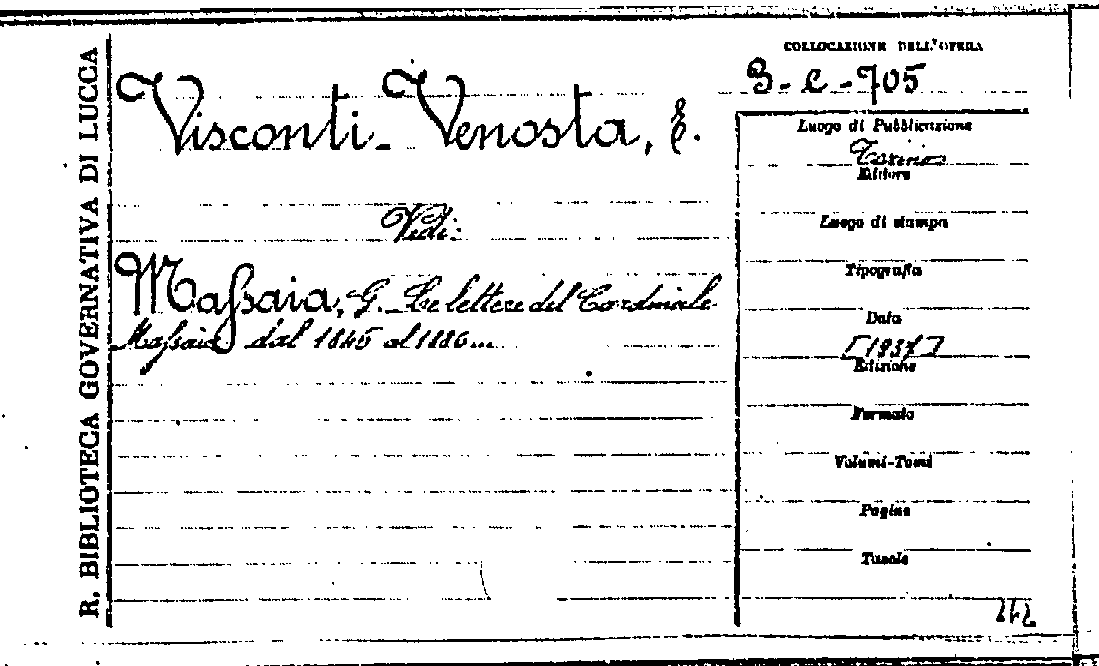 R. BIBLIOTECA GOVERNATIVA DI LUCCA
COLLOCAZIONE DELL'OPERA
3-C-705
Visconti-Venosta, E.
Vedi:
Massaia, G. Le lettere del Cardinale
Massaia dal 1846 al 1886...
Luogo di Pubblicazione
Torino
Editore
Luogo di stampa
Tipografia
Data
[1937]
Edizione
Formato
Volumi-Tomi
Pagine
Tavole